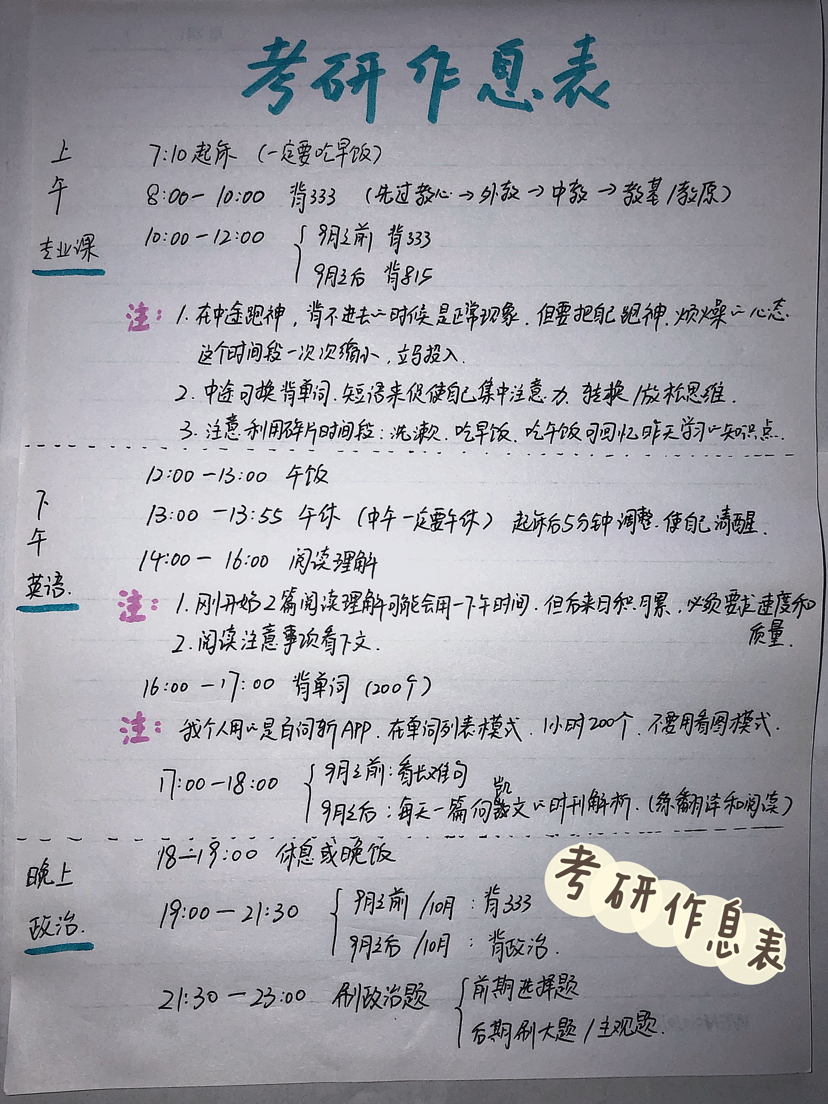 考研作息表
上午
专业课
7:10起床 (一定要吃早饭)
8:00—10:00 背333 (先过教心→外教→中教→教基/教原)
10:00—12:00 { 9月之前 背333
9月之后 背815
注: 1. 在中途跑神,背不进去的时候是正常现象,但要把自己跑神、烦燥的心态
这个时间段一次次缩小,立马投入.
2. 中途可换背单词、短语来促使自己集中注意力、转换/放松思维.
3. 注意利用碎片时间段: 洗漱、吃早饭、吃午饭可回忆昨天学习的知识点.
下午
英语.
12:00—13:00 午饭
13:00—13:55 午休 (中午一定要午休) 起床后5分钟调整.使自己清醒.
14:00—16:00 阅读理解
注: 1. 刚开始2篇阅读理解可能会用一下午时间.但后来日积月累,必须要求速度和
质量.
2. 阅读注意事项看下文.
16:00—17:00 背单词 (200个)
注: 我个人用的是百词斩APP、在单词列表模式、1小时200个、不要用看图模式.
17:00—18:00 { 9月之前: 看长难句
9月之后: 每天一篇何凯文的时刊解析.(练翻译和阅读)
晚上
政治.
18—19:00 休息或晚饭
19:00—21:30 { 9月之前/10月: 背333
9月之后/10月: 背政治.
21:30—23:00 刷政治题 { 前期选择题
后期刷大题/主观题.
考研作息表